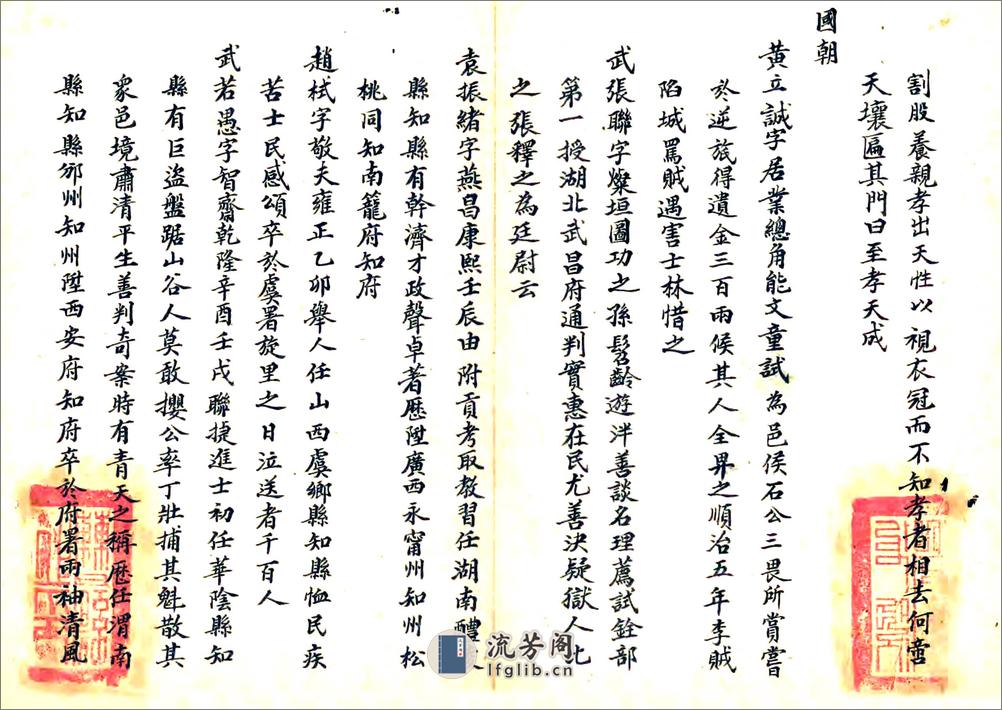 割股養親孝出天性以視衣冠而不知孝者相去何啻
天壤匾其門曰至孝天成
國朝
黃立誠字居業總角能文童試為邑侯石公三畏所賞嘗
於逆旅得遺金三百兩候其人全畀之順治五年李賊
陷城罵賊遇害士林惜之
武張聯字燦垣圖功之孫髫齡遊泮善談名理薦試銓部
第一授湖北武昌府通判實惠在民尤善決疑獄人比
之張釋之為廷尉云
袁振緒字燕昌康熙壬辰由附貢考取教習任湖南醴
縣知縣有幹濟才政聲卓著歷陞廣西永甯州知州松
桃同知南籠府知府
趙栻字敬夫雍正乙卯舉人任山西虞鄉縣知縣恤民疾
苦士民感頌卒於虞署旋里之日泣送者千百人
武若愚字智齋乾隆辛酉壬戌聯捷進士初任華陰縣知
縣有巨盜盤踞山谷人莫敢攖公率丁壯捕其魁散其
衆邑境肅清平生善判奇案時有青天之稱歷任渭南
縣知縣邠州知州陞西安府知府卒於府署兩袖清風
流芳阁
lfglib.cn